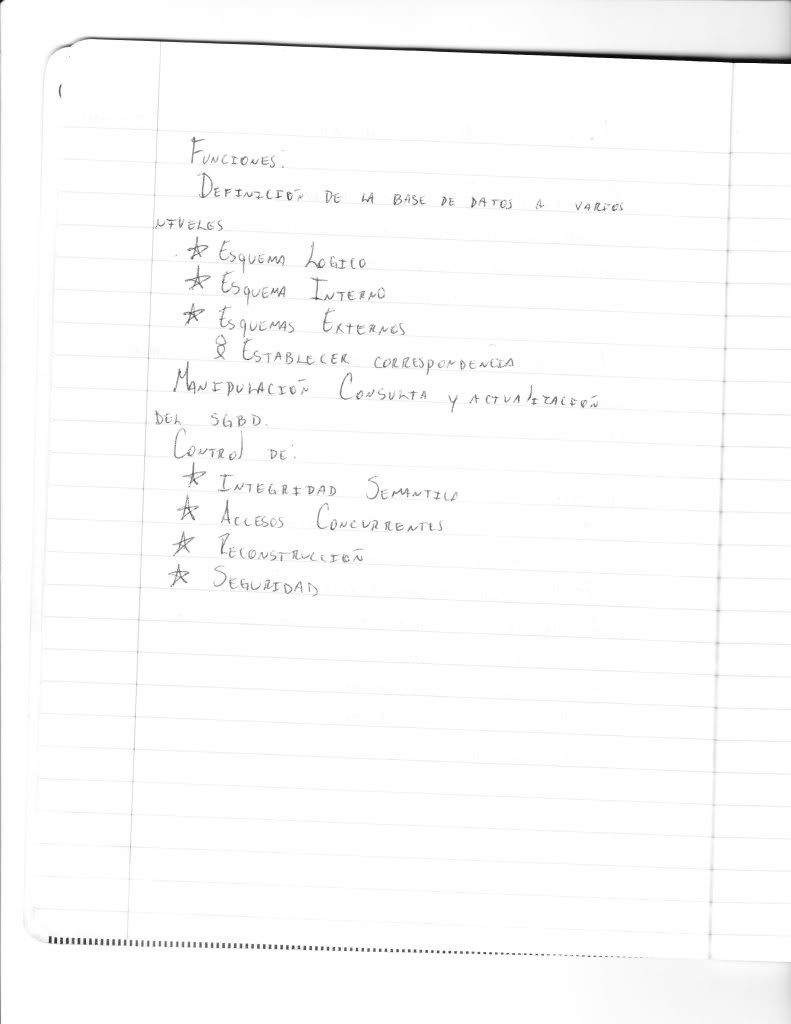 FUNCIONES:
DEFINICIÓN DE LA BASE DE DATOS A VARIOS
NIVELES
☆ ESQUEMA LOGICO
☆ ESQUEMA INTERNO
☆ ESQUEMAS EXTERNOS
8 ESTABLECER CORRESPONDENCIA
MANIPULACIÓN CONSULTA Y ACTUALIZACIÓN
DEL SGBD.
CONTROL DE:
☆ INTEGRIDAD SEMANTICA
☆ ACCESOS CONCURRENTES
☆ RECONSTRUCCIÓN
☆ SEGURIDAD